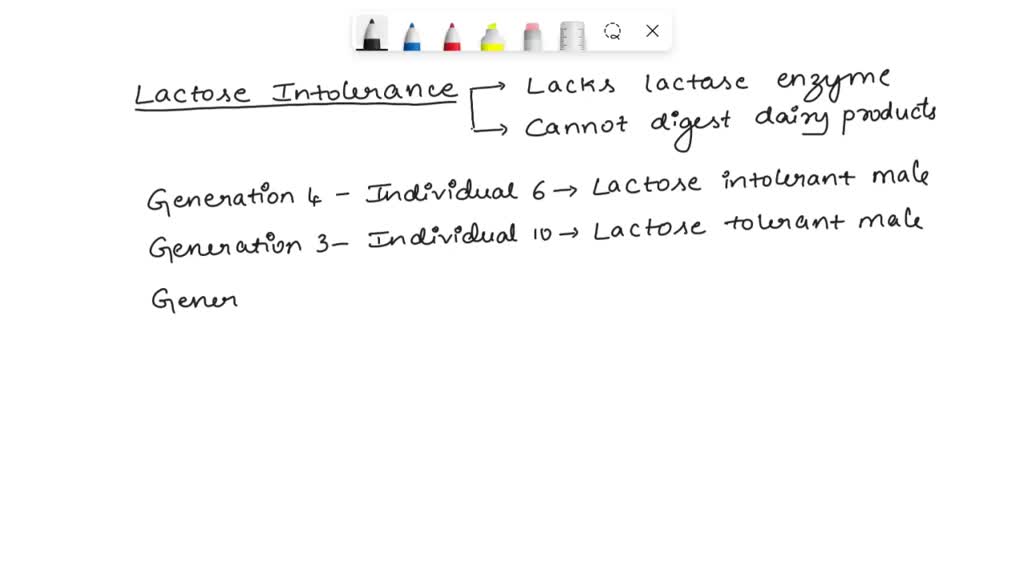 Lactose Intolerance → Lacks lactase enzyme
→ Cannot digest dairy products
Generation 4 - Individual 6 → Lactose intolerant male
Generation 3 - Individual 10 → Lactose tolerant male
Gener